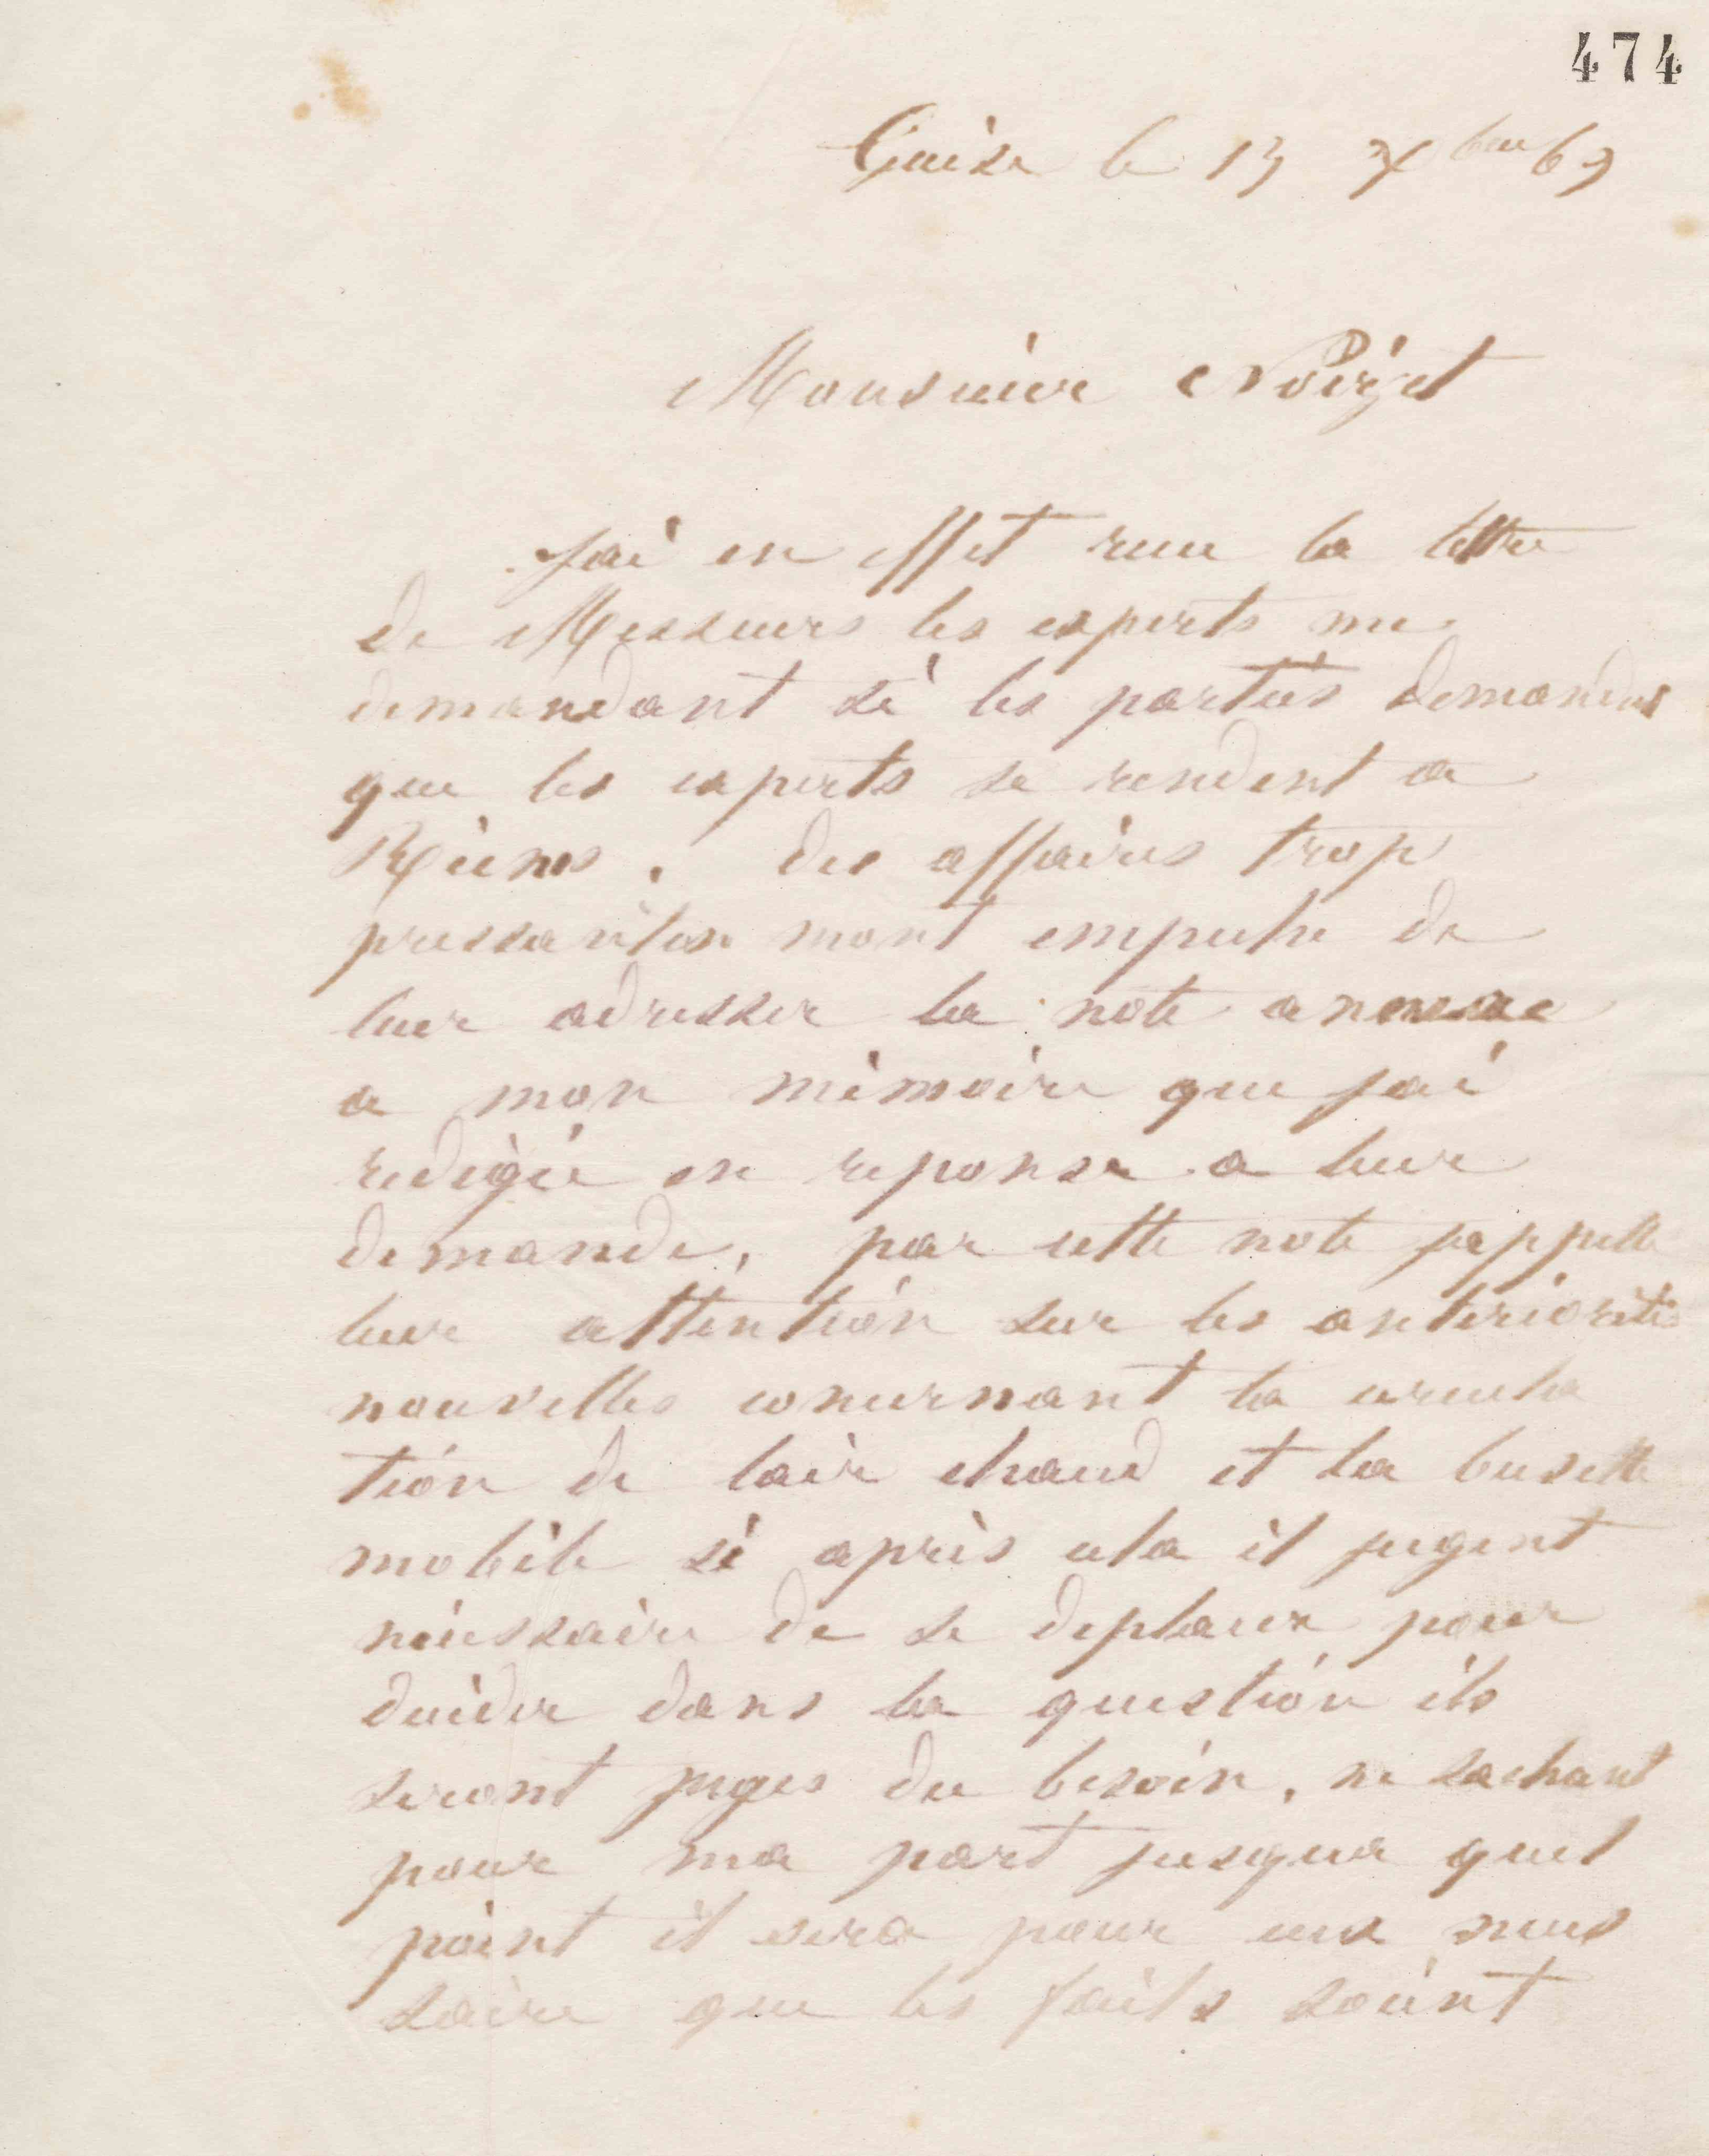 474
Guise le 13 Xbre 69
Monsieur Noirjet
J'ai en effet recu la lettre
de Messieurs les experts me
demandant si les parties demandent
que les experts se rendent a
Reims. des affaires trop
pressantes mont empeché de
leur adresser la note annexe
a mon mémoire que jai
redigée en reponse a leur
demande, par cette note jappelle
leur attention sur les anteriorités
nouvelles concernant la circula
tion de lair chaud et la busette
mobile si après cela il jugent
nécessaire de se deplacer pour
decider dans la question ils
seront juges du besoin, ne sachant
pour ma part jusqua quel
point il sera pour eux neces
saire que les faits soient